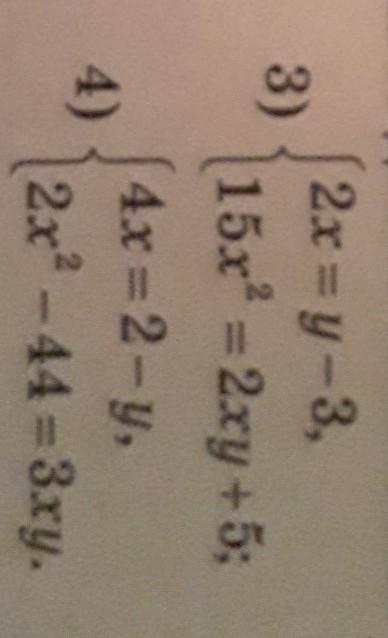 3) { 2x = y − 3,
15x² = 2xy + 5;
4) { 4x = 2 − y,
2x² − 44 = 3xy.